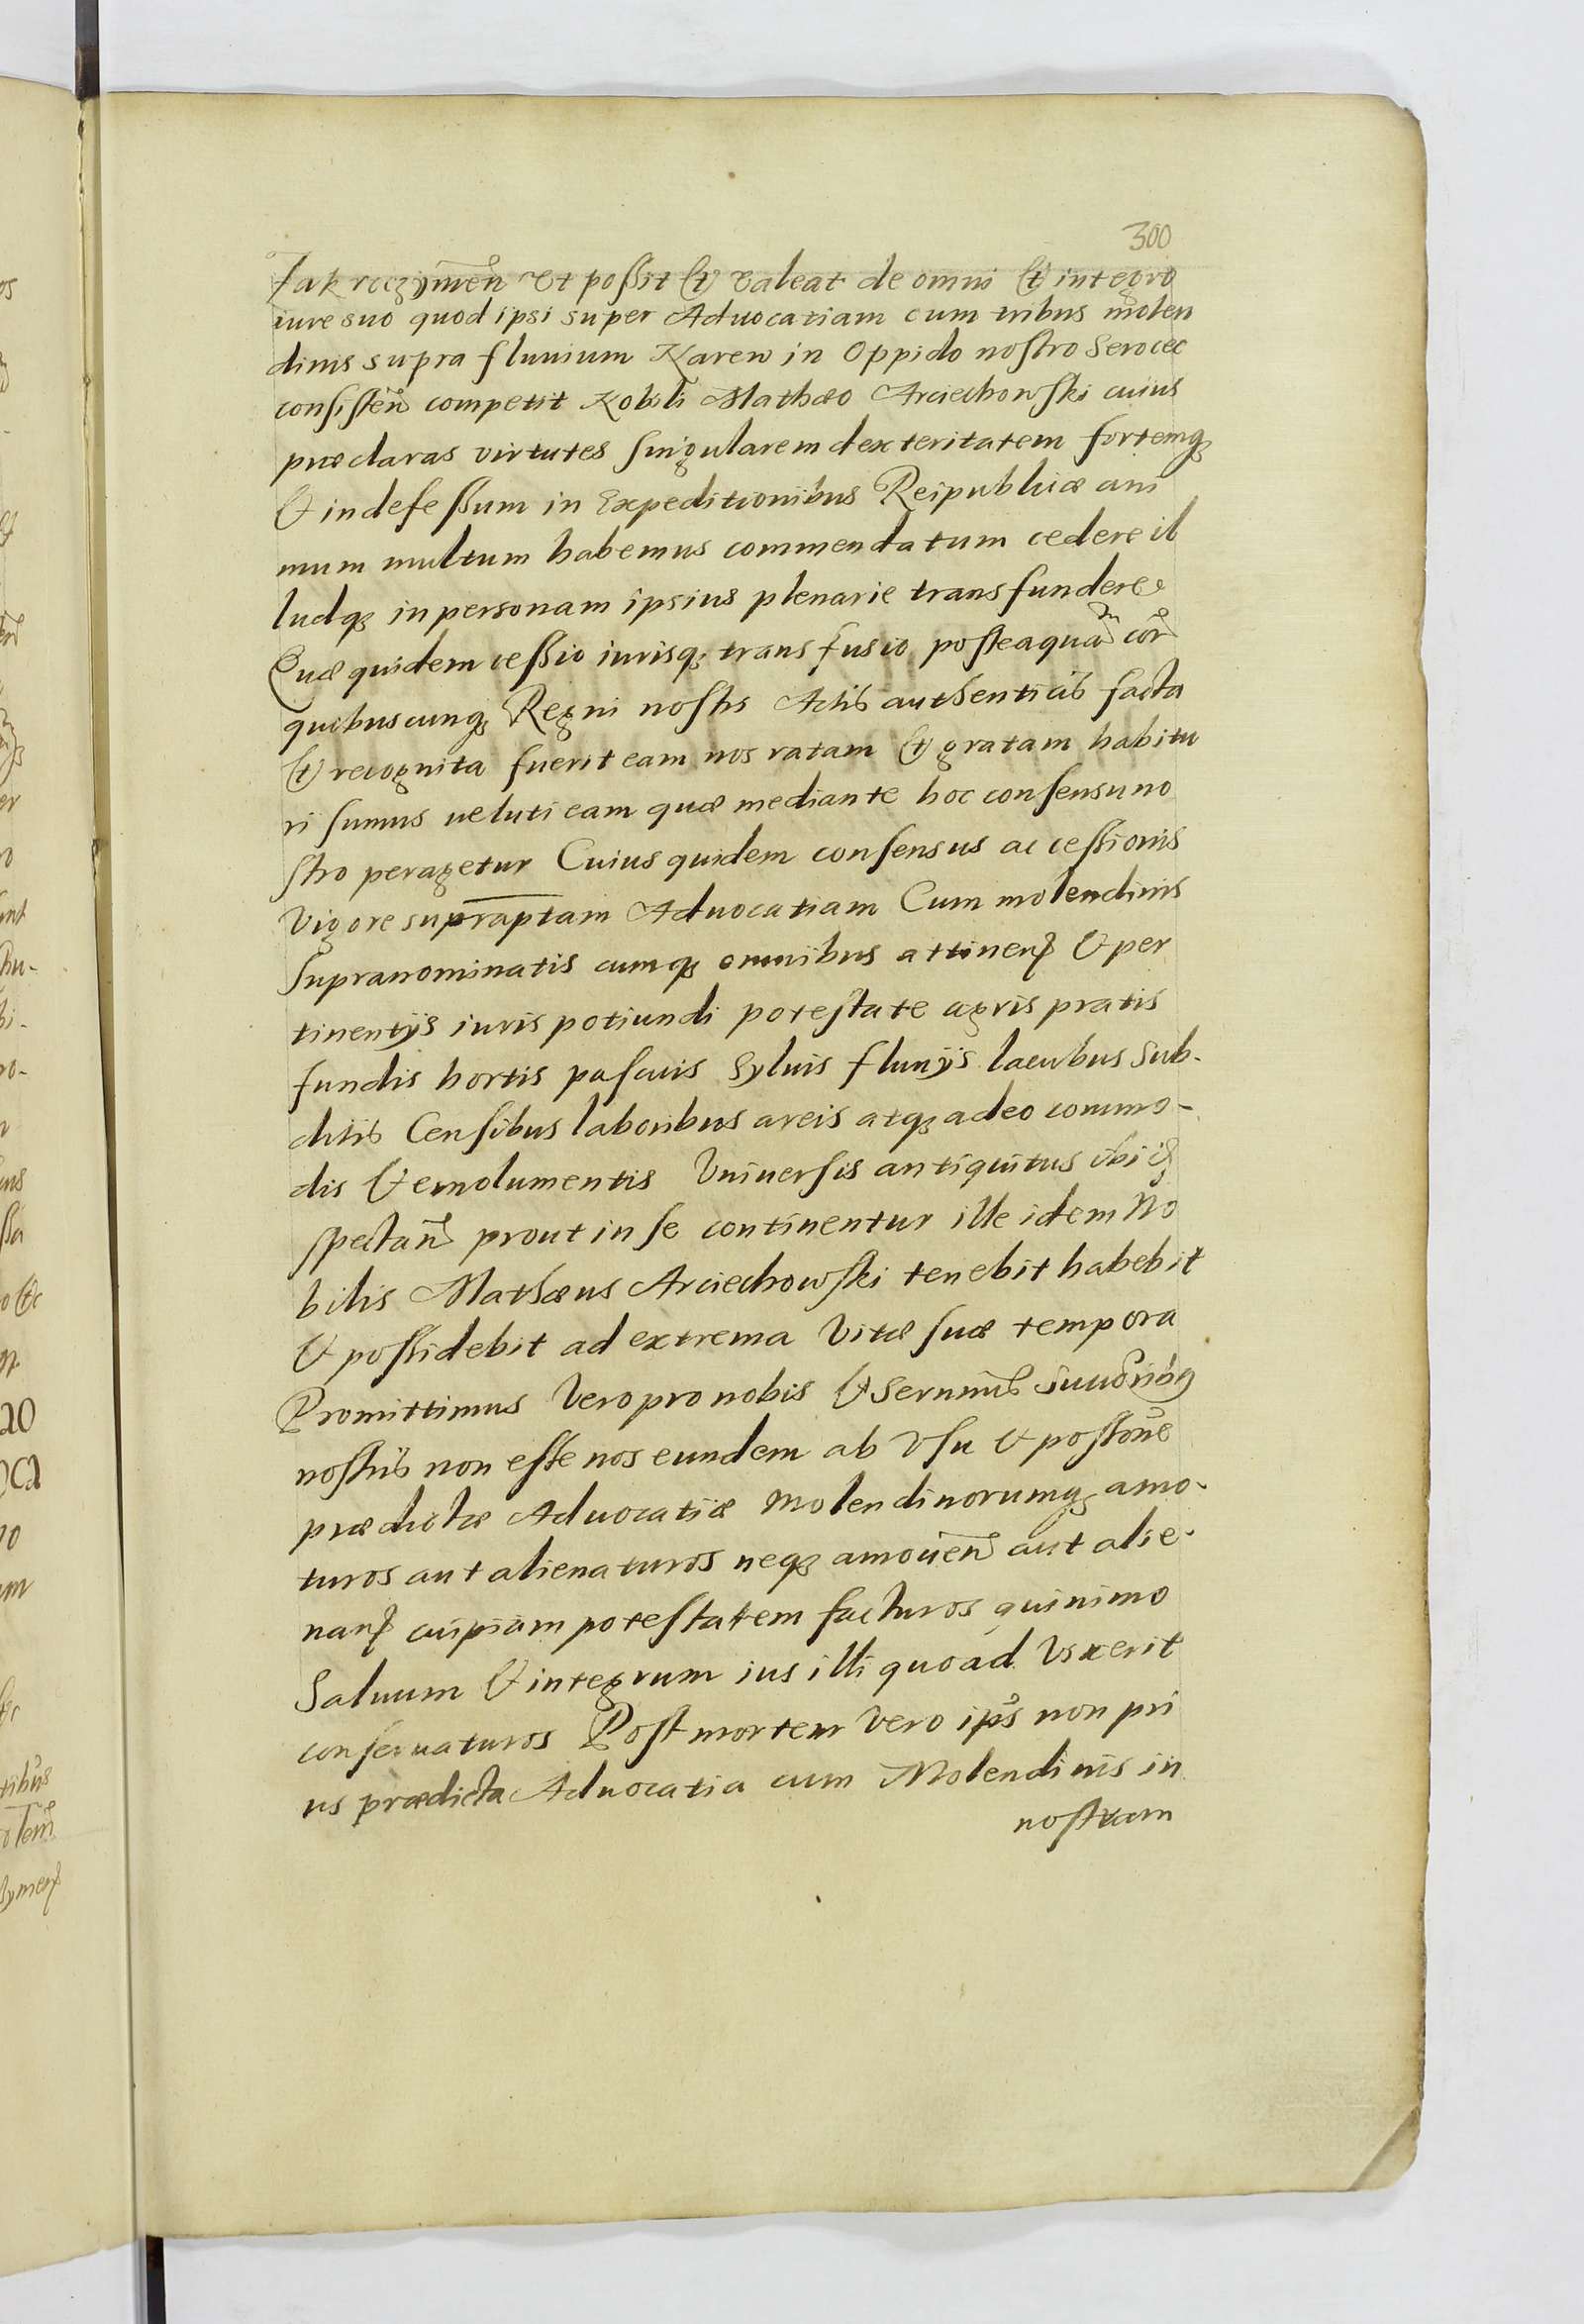 300
Zakroczymen̄ Vt possit et valeat de omni et integro
iure suo quod ipsi super Aduocatiam cum tribus molen
dinis supra fluuium Narew in Oppido nostro Serocec
consisten̄ competit Nobili Mathæo Arciechowski cuius
præclaras virtutes singularem dexteritatem fortemq;
et indefessum in Expeditionibus Reipublicæ ani
mum multum habemus commendatum cedere il
ludq; in personam ipsius plenarie transfundere
Quæ quidem cessio iurisq; transfusio posteaquam cor̄
quibuscunq; Regni nostri Actis authenticis facta
et recognita fuerit eam nos ratam et gratam habitu
ri sumus veluti eam quæ mediante hoc consensu no
stro peragetur Cuius quidem consensus ac cessionis
vigore supraptam Aduocatiam Cum molendinis
supranominatis cumq; omnibus attinen̄ et per
tinentijs iuris potiundi potestate agris pratis
fundis hortis pascuis syluis fluuijs lacubus sub-
ditis Censibus laboribus areis atq; adeo commo-
dis et emolumentis Vniuersis antiquitus ibi
spectan̄ prout in se continentur ille idem No
bilis Mathæus Arciechowski tenebit habebit
et possidebit ad extrema Vitæ suæ tempora
Promittimus Vero pro nobis et Sernmis
nostris non esse nos eundem ab Vsu et possone
prædictæ Aduocatiæ Molendinorumq; amo-
turos aut alienaturos neq; amouen̄ aut alie-
nan̄ cuipiam potestatem facturos quinimo
Saluum et integrum ius illi quoad Vixerit
conseruaturos Post mortem Vero ips̄ non pri
us prædicta Aduocatia cum Molendinis in
nostram